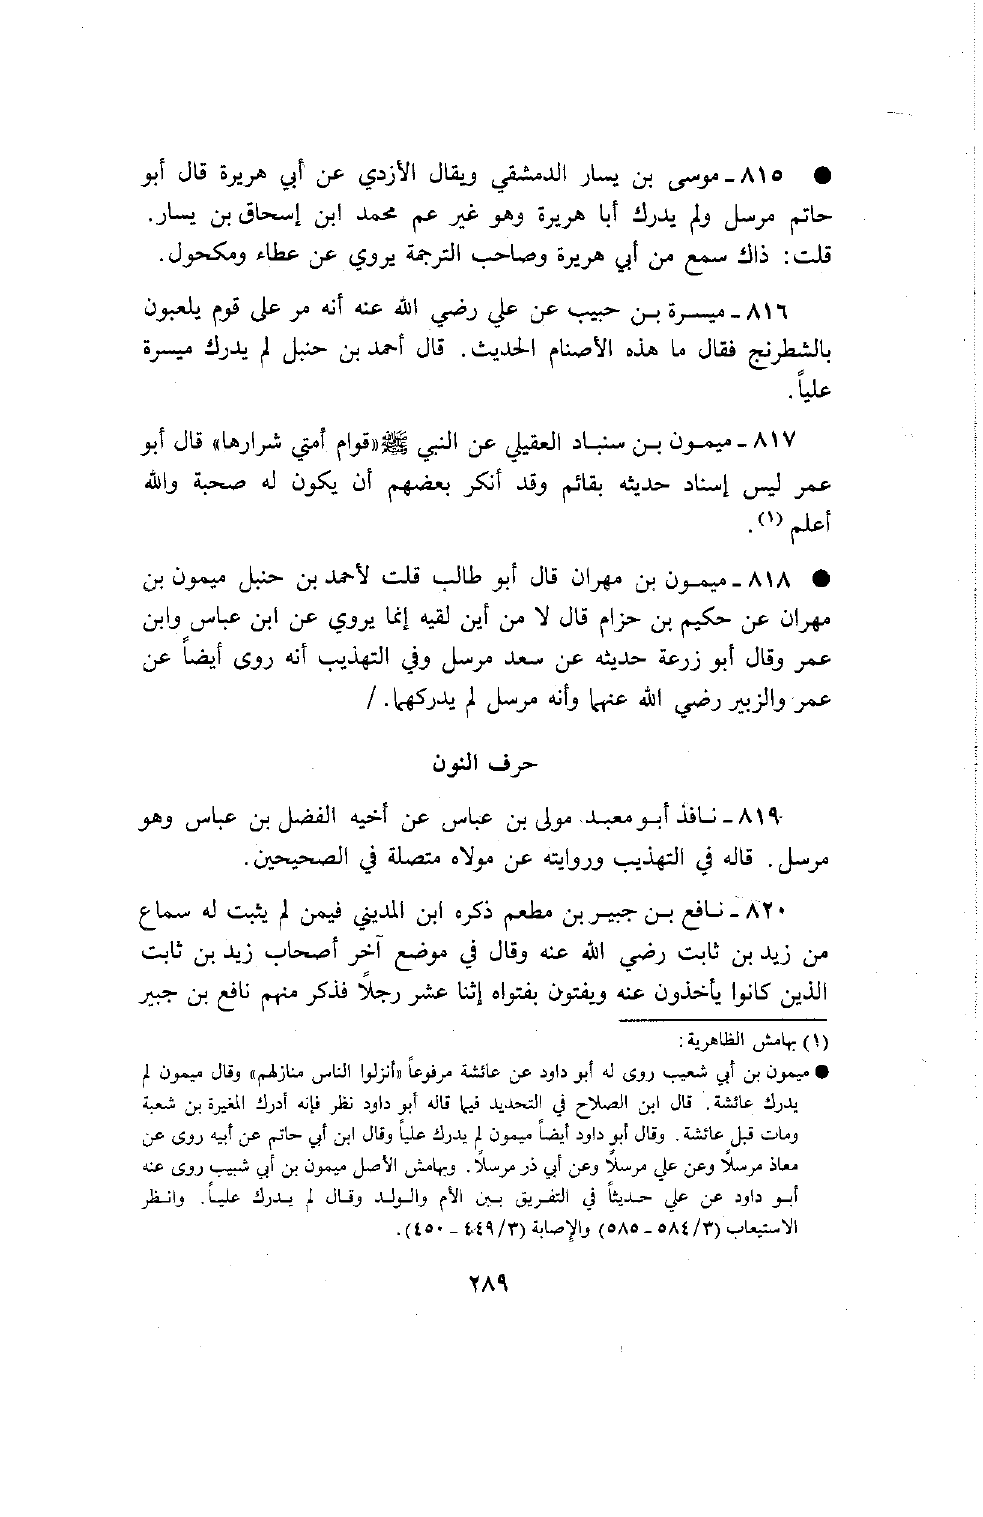 ● ٨١٥ ـ موسى بن يسار الدمشقي ويقال الأزدي عن أبي هريرة قال أبو
حاتم مرسل ولم يدرك أبا هريرة وهو غير عم محمد ابن إسحاق بن يسار.
قلت: ذاك سمع من أبي هريرة وصاحب الترجمة يروي عن عطاء ومكحول.
٨١٦ ـ ميسرة بن حبيب عن علي رضي الله عنه أنه مر على قوم يلعبون
بالشطرنج فقال ما هذه الأصنام الحديث. قال أحمد بن حنبل لم يدرك ميسرة
علياً.
٨١٧ ـ ميمون بن سنباد العقيلي عن النبي ﷺ «قوام أمتي شرارها» قال أبو
عمر ليس إسناد حديثه بقائم وقد أنكر بعضهم أن يكون له صحبة والله
أعلم (١).
● ٨١٨ ـ ميمون بن مهران قال أبو طالب قلت لأحمد بن حنبل ميمون بن
مهران عن حكيم بن حزام قال لا من أين لقيه إنما يروي عن ابن عباس وابن
عمر وقال أبو زرعة حديثه عن سعد مرسل وفي التهذيب أنه روى أيضاً عن
عمر والزبير رضي الله عنهما وأنه مرسل لم يدركهما. /
حرف النون
٨١٩ ـ نافذ أبو معبد مولى بن عباس عن أخيه الفضل بن عباس وهو
مرسل. قاله في التهذيب وروايته عن مولاه متصلة في الصحيحين.
٨٢٠ ـ نافع بن جبير بن مطعم ذكره ابن المديني فيمن لم يثبت له سماع
من زيد بن ثابت رضي الله عنه وقال في موضع آخر أصحاب زيد بن ثابت
الذين كانوا يأخذون عنه ويفتون بفتواه إثنا عشر رجلاً فذكر منهم نافع بن جبير
(١) بهامش الظاهرية:
● ميمون بن أبي شعيب روى له أبو داود عن عائشة مرفوعاً «أنزلوا الناس منازلهم» وقال ميمون لم
يدرك عائشة. قال ابن الصلاح في التحديد فيما قاله أبو داود نظر فإنه أدرك المغيرة بن شعبة
ومات قبل عائشة. وقال أبو داود أيضاً ميمون لم يدرك علياً وقال ابن أبي حاتم عن أبيه روى عن
معاذ مرسلاً وعن علي مرسلاً وعن أبي ذر مرسلاً. وبهامش الأصل ميمون بن أبي شبيب روى عنه
أبو داود عن علي حديثاً في التفريق بين الأم والولد وقال لم يدرك علياً. وانظر
الاستيعاب (٣/ ٥٨٤ ـ ٥٨٥) والإصابة (٣/ ٤٤٩ ـ ٤٥٠).
٢٨٩